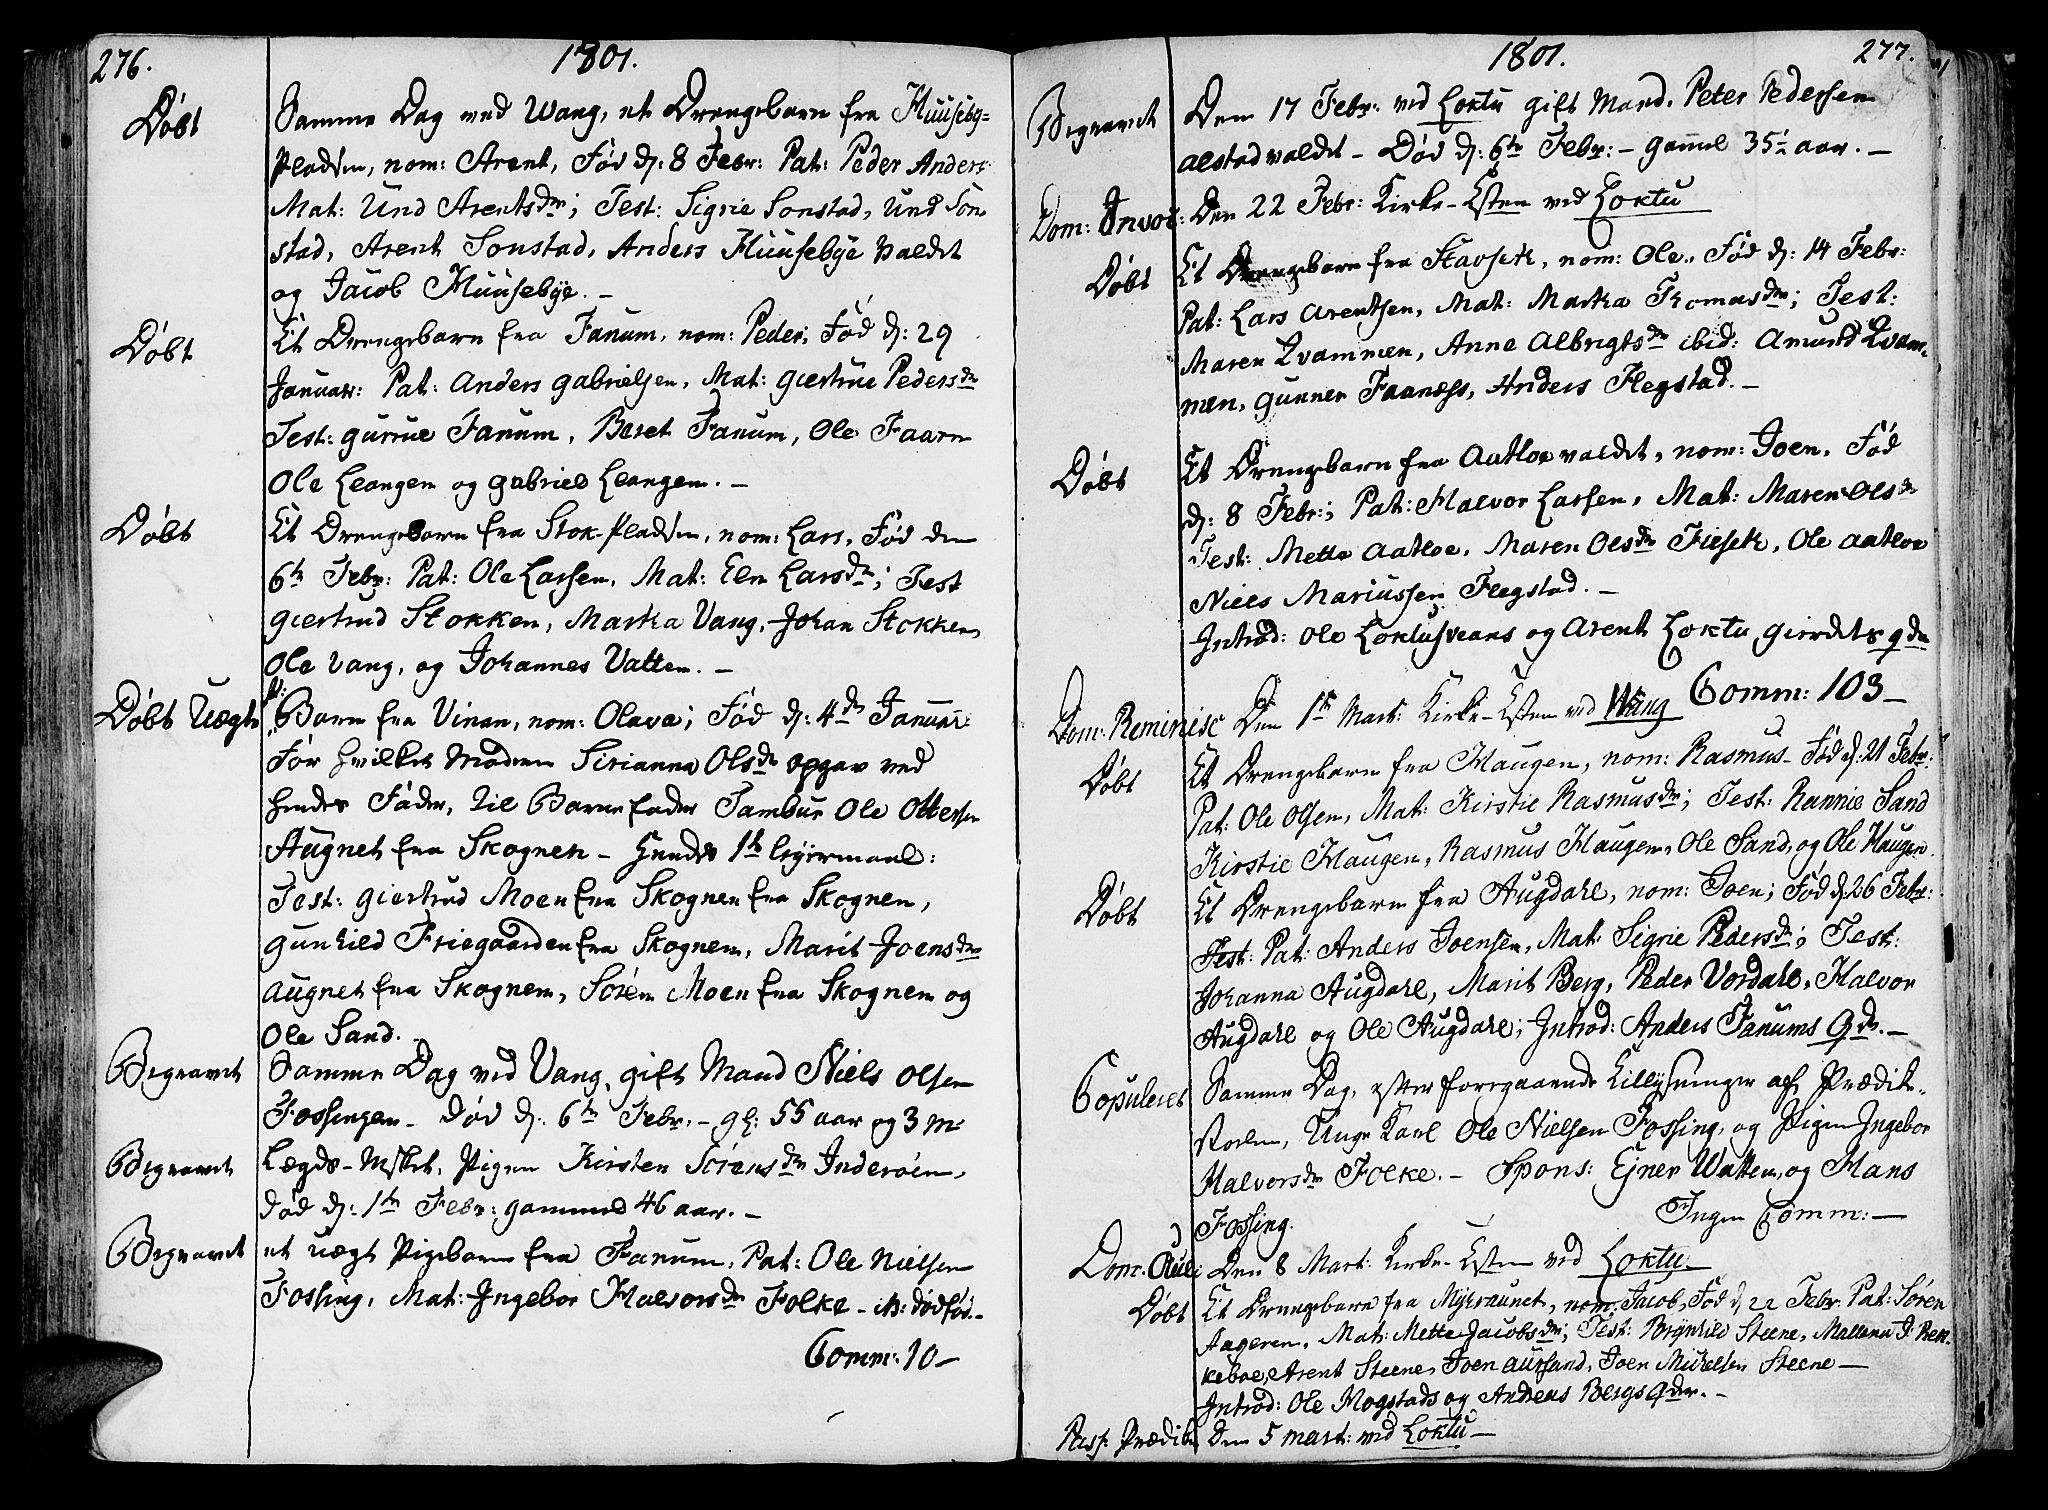 276.
1801.
Döbt
Samme Dag ved Wang, et Drengebarn fra Huuseby=
Pladsen, nom: Arent, Fød d: 8 Febr: Pat: Peder Anders:
Mat: Und Arentsdr; Test: Sigrie Sonstad, Und Son
stad, Arent Sonstad, Anders Huusebye valdet
og Jacob Huusebye. –
Döbt
Et Drengebarn fra Fanum, nom: Peder, Fød d: 29
Januar: Pat: Anders Gabrielsen, Mat: Giertrue Pedersdr
Test: Gurrue Fanum, Beret Fanum, Ole Faarn
Ole Leangen og Gabriel Leangen. –
Döbt
Et Drengebarn fra Stok-Pladsen, nom: Lars, Fød den
6te Febr: Pat: Ole Larsen, Mat: Eln Larsdr; Test
Giertrud Stokken, Marta Vang, Johan Stokken,
Ole Vang, og Johannes Vatten. –
Döbt Uægte
P: Barn fra Vinan, nom: Olava; Fød d: 4de Januar
Før hvilket Moderen Sirianna Olsdr opgav ved
hendes Føder, til Barnefader Tambur Ole Ottersen
Augnet fra Skognen – Hendes 1te Leyermaal:
Test: Giertrud Moen fra Skognen fra Skognen,
Gunhild Friegaarden fra Skognen, Marit Joensdr
Augnet fra Skognen, Sören Moen fra Skognen og
Ole Sand. –
Begravet
Samme Dag ved Vang, gift Mand Niels Olsen
Fossingen – Død d: 6te Febr. – gl: 55 aar og 3 M:
Begravet
Lægds-Msket, Pigen Kirsten Sörensdr Inderöen,
død d: 1te Febr: gammel 46 aar. –
Begravet
et uægt Pigebarn fra Fanum, Pat: Ole Nielsen
Fossing, Mat: Ingebor Halvorsdr Folke – dødfød. –
Comm: 10 –
1801.
277.
Begravet
Den 17 Febr: ved Loktu gift Mand, Peter Pedersen
alstadvaldet – Død d: 6te Febr: – gammel 35½ aar. –
Dom: Invoc:
Den 22 Febr: Kirke-Esten ved Loktu
Döbt
Et Drengebarn fra Stavsek, nom: Ole, Fød d: 14 Febr:
Pat: Lars Arentsen, Mat: Marta Thomasdr; Test:
Maren Qvammen, Anne Albrigtsdr ibid: Amund Qvam-
men, Gunner Faaness, Anders Flegstad. –
Döbt
Et Drengebarn fra Aatloe valdet, nom: Joen, Fød
d: 8 Febr:; Pat: Halvor Larsen, Mat: Maren Olsdr
Test: Mette Aatloe, Maren Olsdr Fiesek, Ole Aatloe
Niels Mariussen Flegstad. –
Introd: Ole Loktusveans og Arent Loktu gierdets qdr
Comm: 103 –
Dom: Reminisc
Den 1te Mart: Kirke-Esten ved Wang
Döbt
Et Drengebarn fra Haugen, nom: Rasmus – Fød d: 21 Febr:
Pat: Ole Olsen, Mat: Kirstie Rasmusdr; Test: Rannie Sand
Kirstie Haugen, Rasmus Haugen, Ole Sand, og Ole Haugen
Döbt
Et Drengebarn fra Augdahl, nom: Joen; Fød d: 26 Febr:
Test: Pat: Anders Joensen, Mat: Sigrie Pedersdr; Test:
Johanna Augdahl, Marit Berg, Peder Vordahl, Halvor
Augdahl og Ole Augdahl; Introd: Anders Fanums Qdr. –
Copuleret
Samme Dag, efter foregaaende tillysninger af Prædike-
stolen, Unge Karl Ole Nielsen Fossing, og Pigen Ingebor
Halvorsdr Folke. – Spons: Ejner Watten, og Hans
Fossing.
Ingen Comm: –
Dom: Oculi
Den 8 Mart: Kirke-Esten ved Loktu. –
Döbt
Et Drengebarn fra Myhraunet, nom: Jacob, Fød d, 22 Febr: Pat: Sören
Aageren, Mat: Mette Jacobsdr; Test: Brynhild Steene, Mallena I: Rek-
keboe, Arent Steene, Joen Aursand, Joen Mikelsen Steene –
Introd: Ole Mogstads og Andreas Bergs Qdr. –
Pass: Prædik:
Den 5 Mart: ved Loktu –